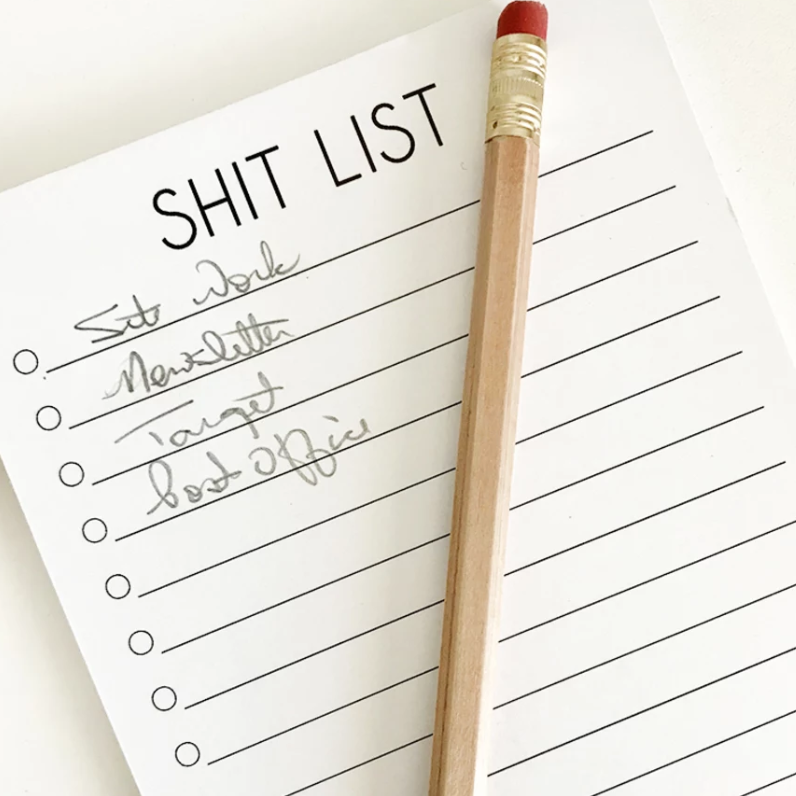 SHIT LIST
Site Work
Newsletter
Target
Post Office